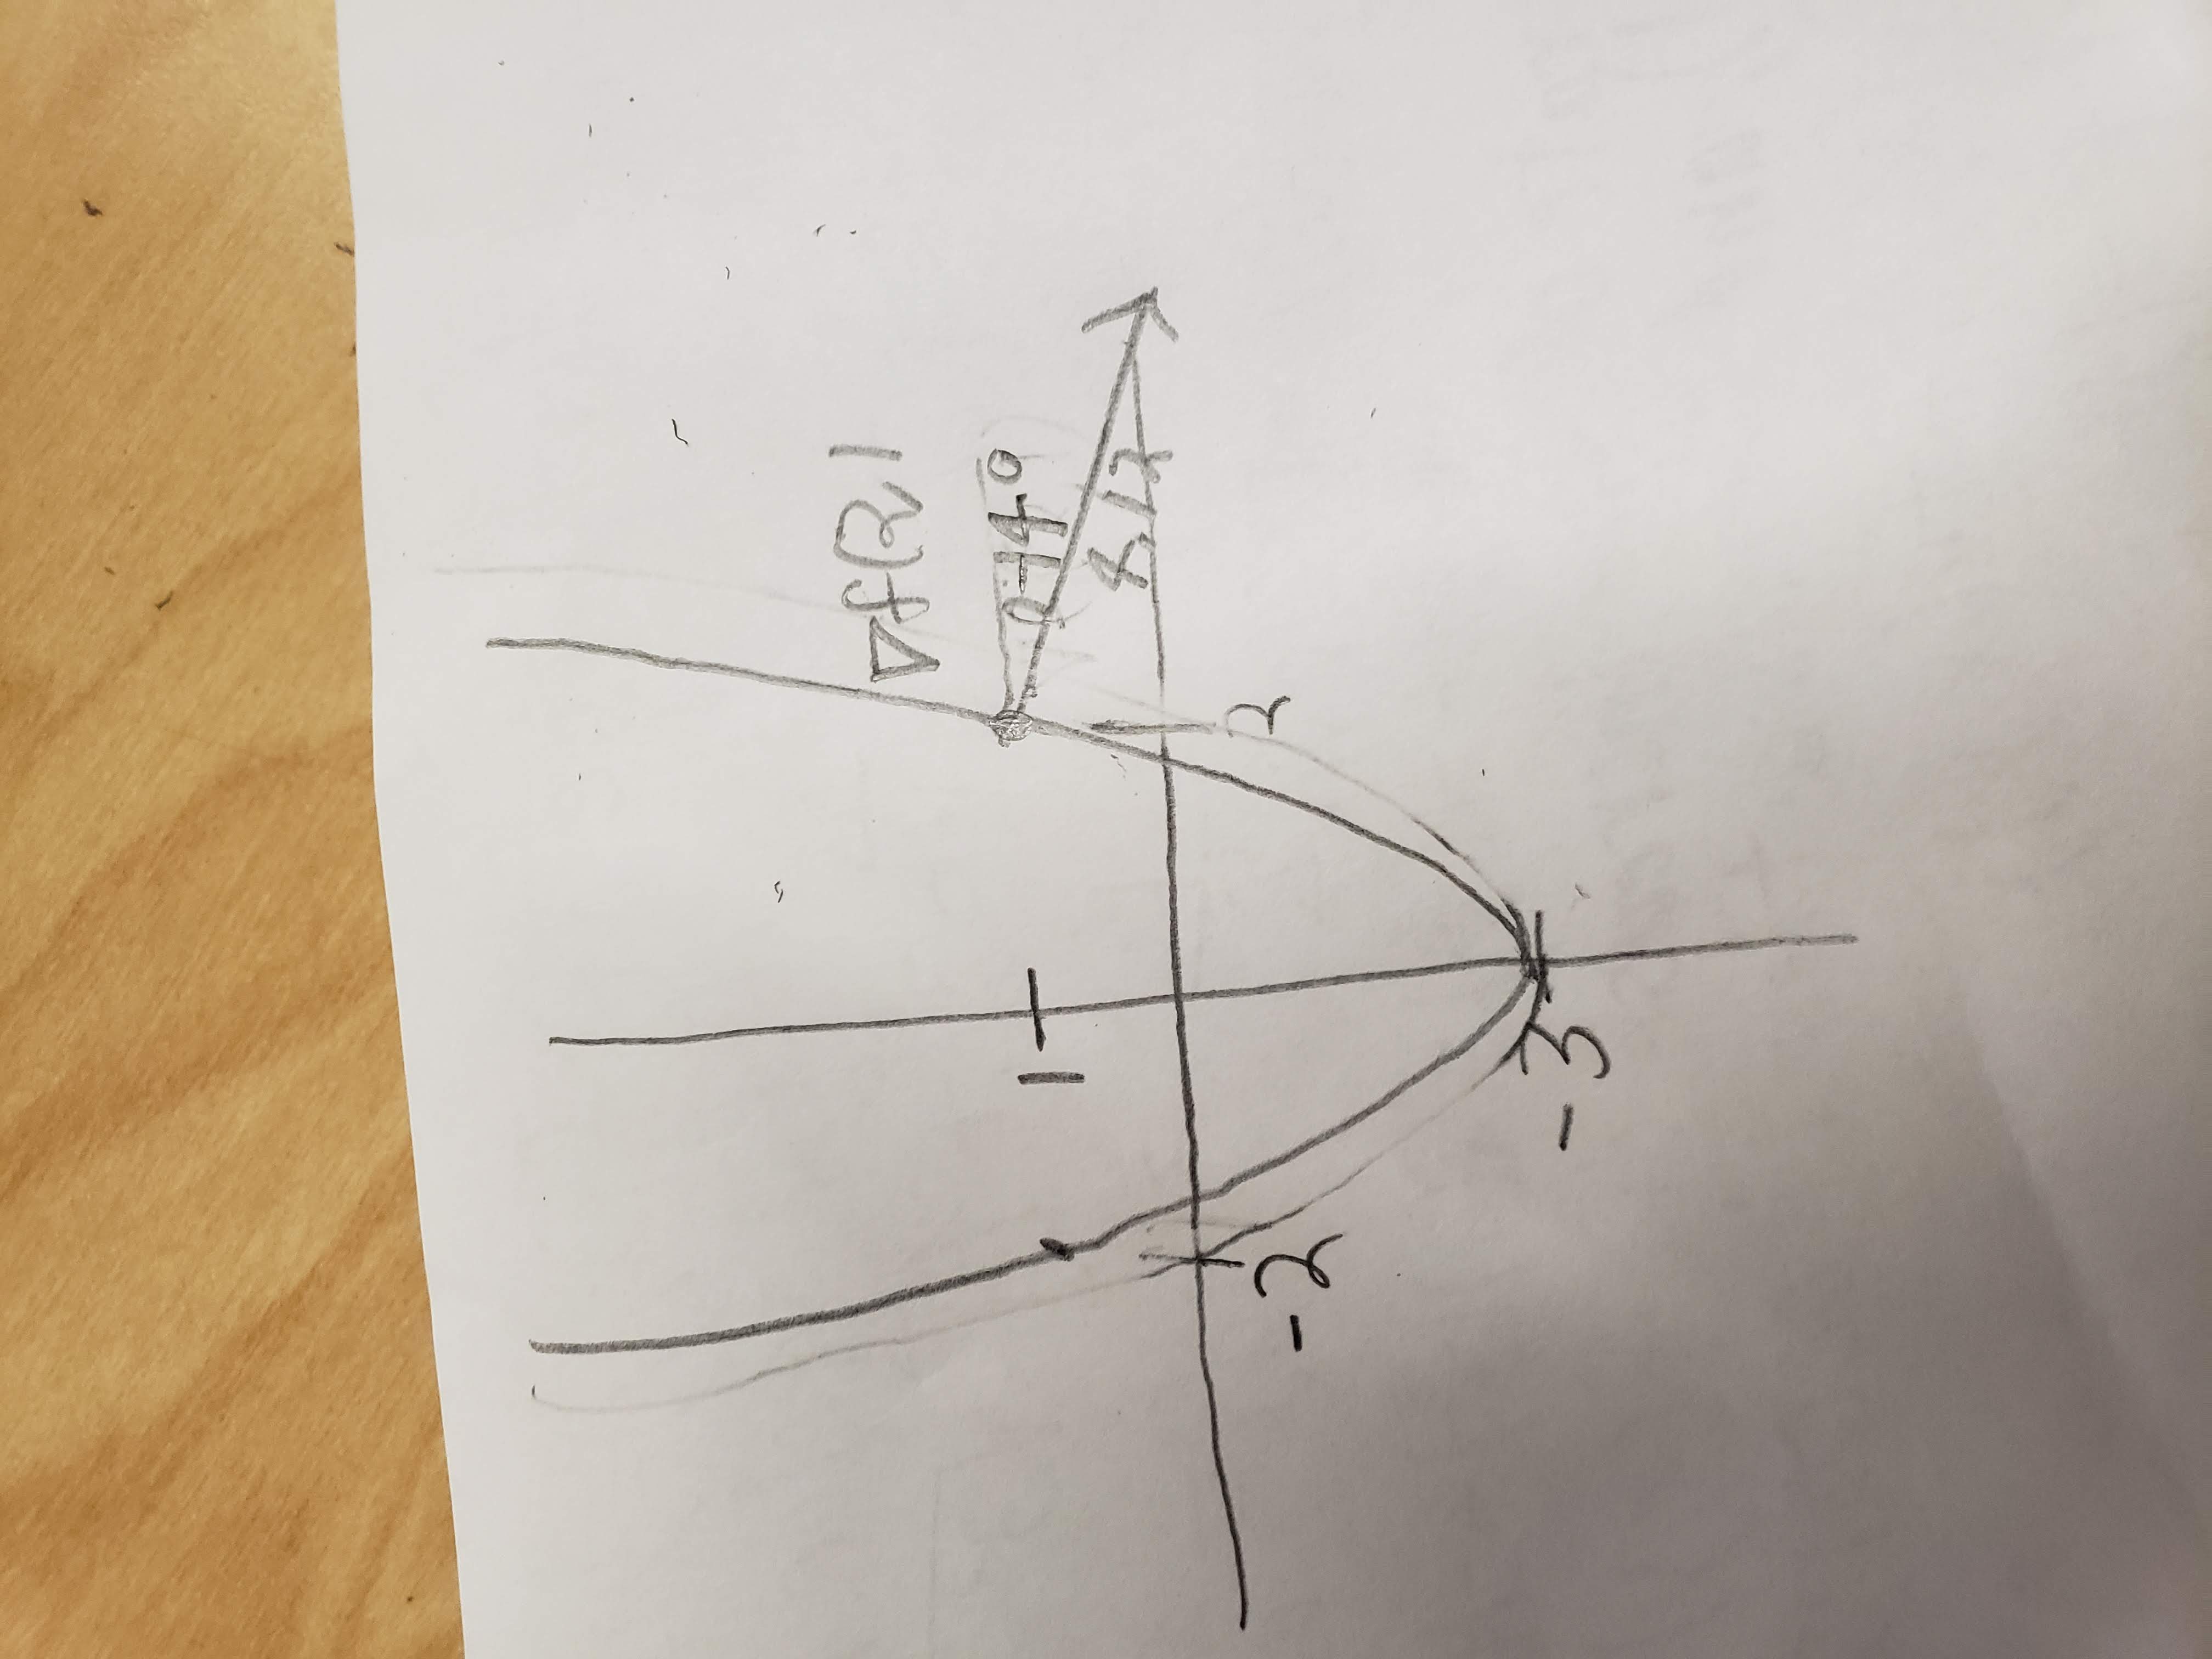 ∇f(2,1
1
-14°
8.12
-2
2
-3